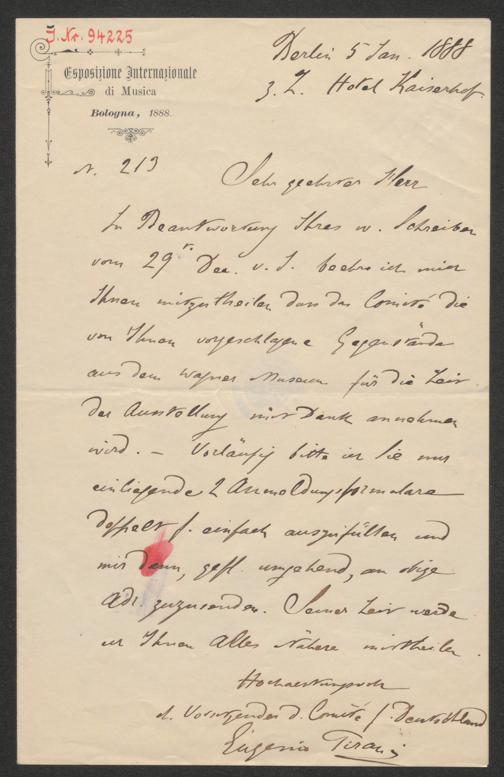 J. Nr. 94225
Esposizione Internazionale
di Musica
Bologna, 1888.
Berlin 5 Jan. 1888
z. Z. Hotel Kaiserhof.
N. 213
Sehr geehrter Herr
In Beantwortung Ihres w. Schreiben
vom 29 Dec. v. J. beehre ich mich
Ihnen mitzutheilen dass das Comité die
von Ihnen vorgeschlagene Gegenstände
aus dem Wagner Museum für die Zeit
der Ausstellung mit Dank annehmen
wird. – Vorläufig bitte ich Sie nur
einliegende 2 Anmeldungsformulare
doppelt einfach auszufüllen und
mir dann, gefl. umgehend, an obige
Adr. zuzusenden. Seiner Zeit werde
ich Ihnen Alles Nähere mittheilen.
Hochachtungsvoll
d. Vorsitzender d. Comité f. Deutschland
Eugenio Pirani